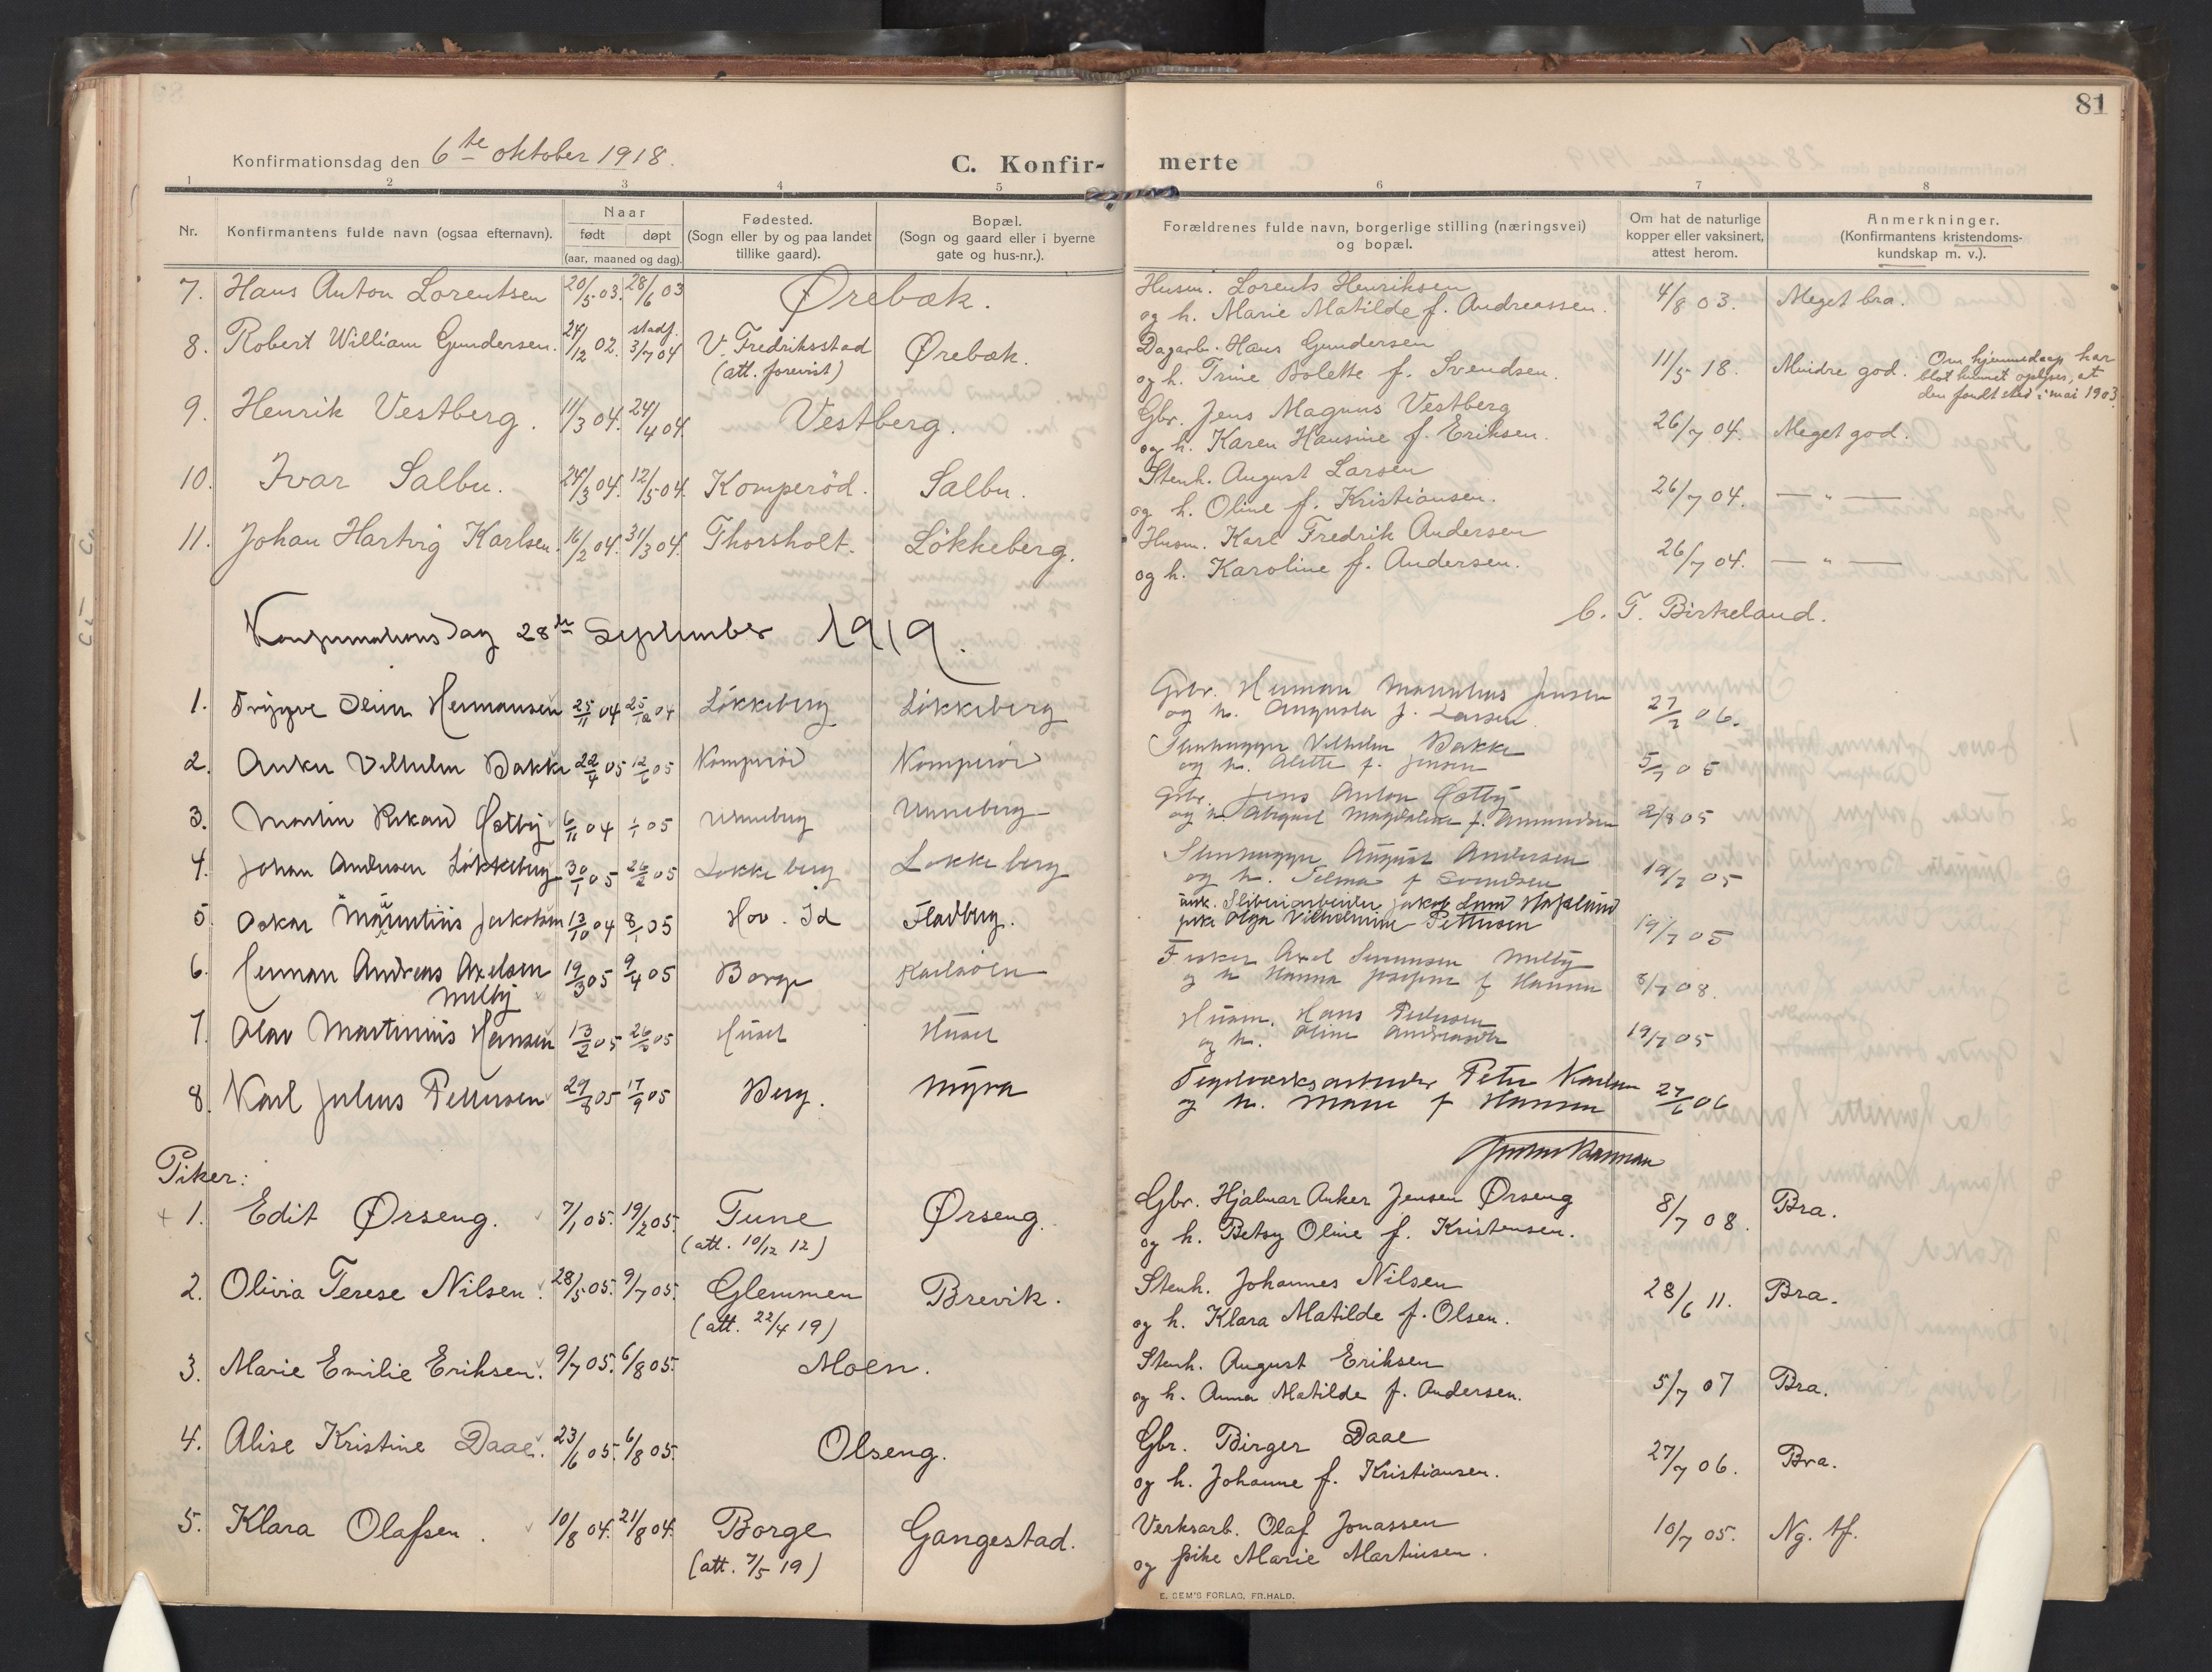 81
Konfirmationsdag den 6te oktober 1918.
C. Konfir- merte
1 2 3 4 5 6 7 8
Nr. Konfirmantens fulde navn (ogsaa efternavn). Naar født døpt (aar, maaned og dag). Fødested. (Sogn eller by og paa landet tillike gaard). Bopæl. (Sogn og gaard eller i byerne gate og hus-nr.). Forældrenes fulde navn, borgerlige stilling (næringsvei) og bopæl. Om hat de naturlige kopper eller vaksinert, attest herom. Anmerkninger. (Konfirmantens kristendoms-kundskap m. v.).
7. Hans Anton Lorentsen 20/5 03. 28/6 03 Ørebæk. Husm. Lorents Henriksen 4/8 03. Meget bra.
og h. Marie Matilde f. Andreassen.
8. Robert William Gundersen. 24/12 02. stadf. 3/7 04 V. Fredriksstad (att. forevist) Ørebæk. Dagarb. Hans Gundersen 11/5 18. Mindre god. Om hjemmedaap har blot kunnet oplyses, at den fandt sted i mai 1903.
og h. Trine Bolette f. Svendsen.
9. Henrik Vestberg. 11/3 04. 24/4 04. Vestberg. Gbr. Jens Magnus Vestberg 26/7 04. Meget god.
og h. Karen Hansine f. Eriksen.
10. Ivar Salbu. 24/3 04. 12/5 04. Komperöd. Salbu. Stenh. August Larsen 26/7 04. — " —
og h. Oline f. Kristiansen.
11. Johan Hartvig Karlsen. 16/2 04. 31/3 04. Thorsholt. Lökkeberg. Husm. Karl Fredrik Andersen 26/7 04. — " —
og h. Karoline f. Andersen.
C. T. Birkeland.
Konfirmationsdag 28de September 1919.
1. Trygve Hermansen 25/11 04 25/12 04 Løkkeberg Løkkeberg Gbr. Herman Jensen 27/7 06.
og h. Augusta f. Larsen
2. Anker Vilhelm Bakke 22/4 05 12/6 05 Komperöd Komperöd Stenhugger Vilhelm Bakke 5/7 05
og h. Alette f. Jensen
3. Martin Rikard Östby 6/11 04 1/1 05 Unneberg Unneberg Gbr. Jens Anton Östby 2/8 05
og h. Abigael Magdalene f. Amundsen
4. Johan Andersen Løkkeberg 30/1 05 26/2 05 Løkkeberg Løkkeberg Stenhugger August Andersen 19/7 05
og h. Selma f. Svendsen
5. Oskar Mauritius Jakobsen 13/10 04 8/1 05 Hov. Id Fladberg. unk. Sliberiarbeider Jakob Lund Hafslund 19/7 05
pike Olga Vilhelmine Pettersen
6. Herman Andreas Axelsen 19/3 05 9/4 05 Borge Fisker Axel Sørensen Melby 8/7 08.
Melby og h. Hanna Josefine f. Hansen
7. Olav Martinius Hansen 13/2 05 26/3 05 Huset Huset Husm. Hans Pedersen 19/7 05
og h. Oline Andreasdtr
8. Karl Julius Pettersen 29/8 05 17/9 05 Berg. Myra Teglverksarbeider Peter Karlsen 27/6 06
og h. Marie f. Hansen
Piker:
+ 1. Edit Ørseng. 7/1 05. 19/2 05. Tune (att. 10/12 12) Ørseng. Gbr. Hjalmar Anker Jensen Ørseng 8/7 08. Bra.
og h. Betsy Oline f. Kristensen.
2. Olivia Terese Nilsen. 28/5 05. 9/7 05. Glemmen (att. 22/4 19) Brevik. Stenh. Johannes Nilsen 28/6 11. Bra.
og h. Klara Matilde f. Olsen.
3. Marie Emilie Eriksen. 9/7 05. 6/8 05. Moen. Stenh. August Eriksen 5/7 07 Bra.
og h. Anna Matilde f. Andersen.
4. Alise Kristine Daae. 23/6 05. 6/8 05. Olseng. Gbr. Birger Daae 27/7 06. Bra.
og h. Johanne f. Kristiansen.
5. Klara Olafsen. 10/8 04. 21/8 04. Borge (att. 7/5 19) Gangestad. Verksarb. Olaf Jonassen 10/7 05. Ng. tf.
og pike Marie Martinsen.
E. SEM'S FORLAG, FR.HALD.